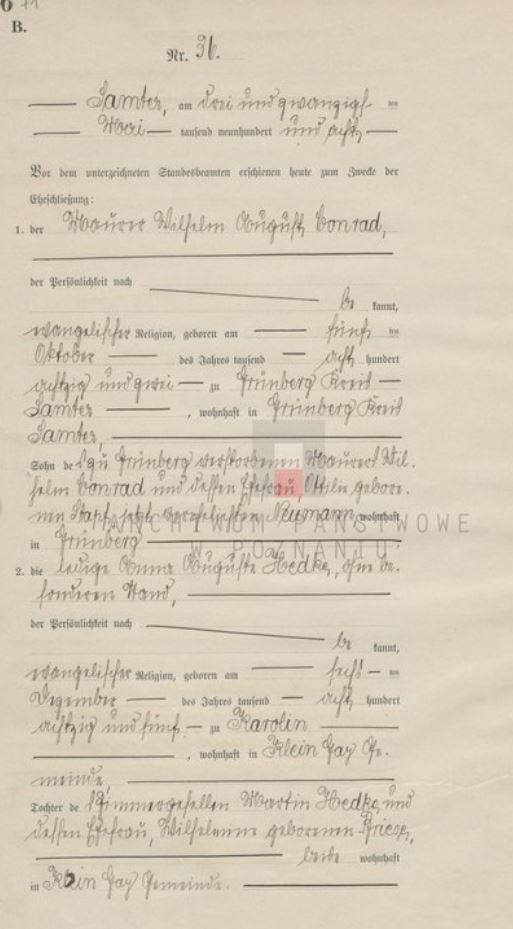 71
B.
Nr. 36.
Samter, am drei und zwanzigsten
Mai tausend neunhundert und acht
Vor dem unterzeichneten Standesbeamten erschienen heute zum Zwecke der
Eheschließung:
1. der Maurer Wilhelm August Conrad,
der Persönlichkeit nach
be kannt,
evangelischer Religion, geboren am fünften
Oktober des Jahres tausend acht hundert
achtzig und zwei zu Grünberg Kreis
Samter, wohnhaft in Grünberg Kreis
Samter,
Sohn des zu Grünberg verstorbenen Maurers Wil-
helm Conrad und dessen Ehefrau, Ottilie gebore-
nen Stapf, jetzt verehelichten Neumann wohnhaft
in Grünberg
ARCHIWUM PAŃSTWOWE
W POZNANIU
2. die ledige Anna Auguste Hedke, ohne be-
sonderen Stand,
der Persönlichkeit nach
be kannt,
evangelischer Religion, geboren am sechs ten
Dezember des Jahres tausend acht hundert
achtzig und fünf zu Karolin
, wohnhaft in Klein Gay Ge-
meinde,
Tochter des Zimmergesellen Martin Hedke und
dessen Ehefrau, Wilhelmine geborenen
beide wohnhaft
in Klein Gay Gemeinde.